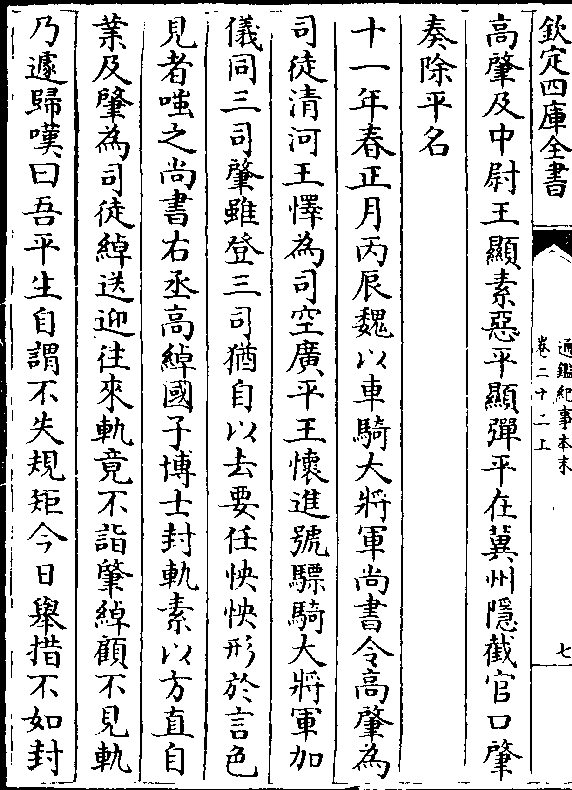 欽定四庫全書
通鑑紀事本末
卷二十二上
七
高肇及中尉王顯素惡平顯彈平在冀州隱截官口肇
奏除平名
十一年春正月丙辰魏以車騎大將軍尚書令高肇為
司徒清河王懌為司空廣平王懷進號驃騎大將軍加
儀同三司肇雖登三司猶自以去要任怏怏形於言色
見者嗤之尚書右丞高綽國子博士封軌素以方直自
業及肇為司徒綽送迎往來軌竟不詣肇綽顧不見軌
乃遽歸嘆曰吾平生自謂不失規矩今日舉措不如封